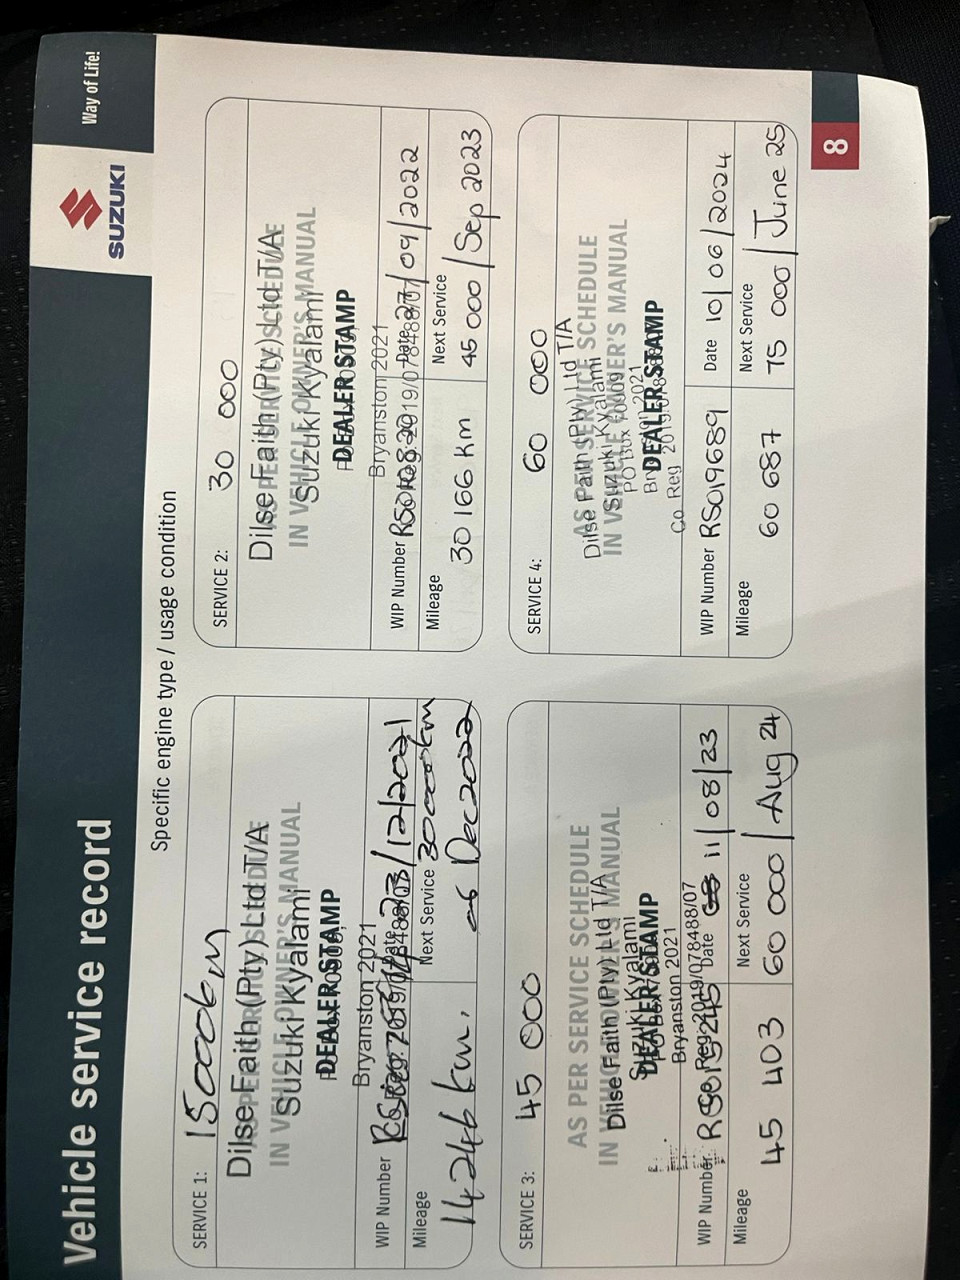 Vehicle service record
SUZUKI
Way of Life!
Specific engine type / usage condition
SERVICE 1: 15000km
AS PER SERVICE SCHEDULE
IN VEHICLE OWNER'S MANUAL
Dilse Faith (Pty) Ltd T/A
Suzuki Kyalami
DEALER STAMP
Bryanston 2021
WIP Number
Date 23/12/2021
Mileage
14 246 km.
Next Service 30000km
Dec 2022
SERVICE 2: 30 000
AS PER SERVICE SCHEDULE
IN VEHICLE OWNER'S MANUAL
Dilse Faith (Pty) Ltd T/A
Suzuki Kyalami
DEALER STAMP
Bryanston 2021
WIP Number
Date 27/09/2022
Mileage
30 166 km
Next Service
45 000 / Sep 2023
SERVICE 3: 45 000
AS PER SERVICE SCHEDULE
IN VEHICLE OWNER'S MANUAL
Dilse Faith (Pty) Ltd T/A
Suzuki Kyalami
DEALER STAMP
Bryanston 2021
Reg 2019/078488/07
WIP Number
Date 11/08/23
Mileage
45 403
Next Service
60 000 / Aug 24
SERVICE 4: 60 000
AS PER SERVICE SCHEDULE
IN VEHICLE OWNER'S MANUAL
Dilse Faith (Pty) Ltd T/A
Suzuki Kyalami
PO Box
DEALER STAMP
2021
Co Reg
WIP Number RS019689
Date 10/06/2024
Mileage
60 687
Next Service
75 000 / June 25
8